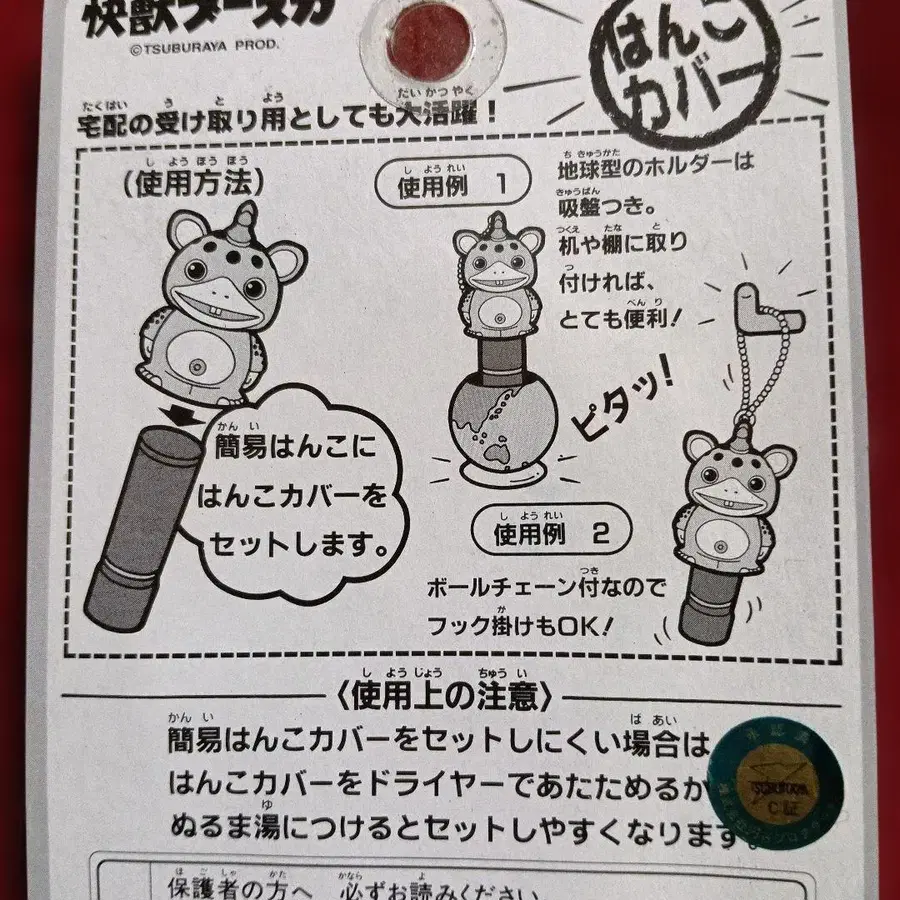 快獣ブースカ
©TSUBURAYA PROD.
はんこ
カバー
宅配の受け取り用としても大活躍!
(使用方法)
簡易はんこに
はんこカバーを
セットします。
使用例 1
地球型のホルダーは
吸盤つき。
机や棚に取り
付ければ、
とても便利!
ピタッ!
使用例 2
ボールチェーン付なので
フック掛けもOK!
〈使用上の注意〉
簡易はんこカバーをセットしにくい場合は
はんこカバーをドライヤーであたためるか
ぬるま湯につけるとセットしやすくなります。
TSUBURAYA
C証
保護者の方へ 必ずお読みください